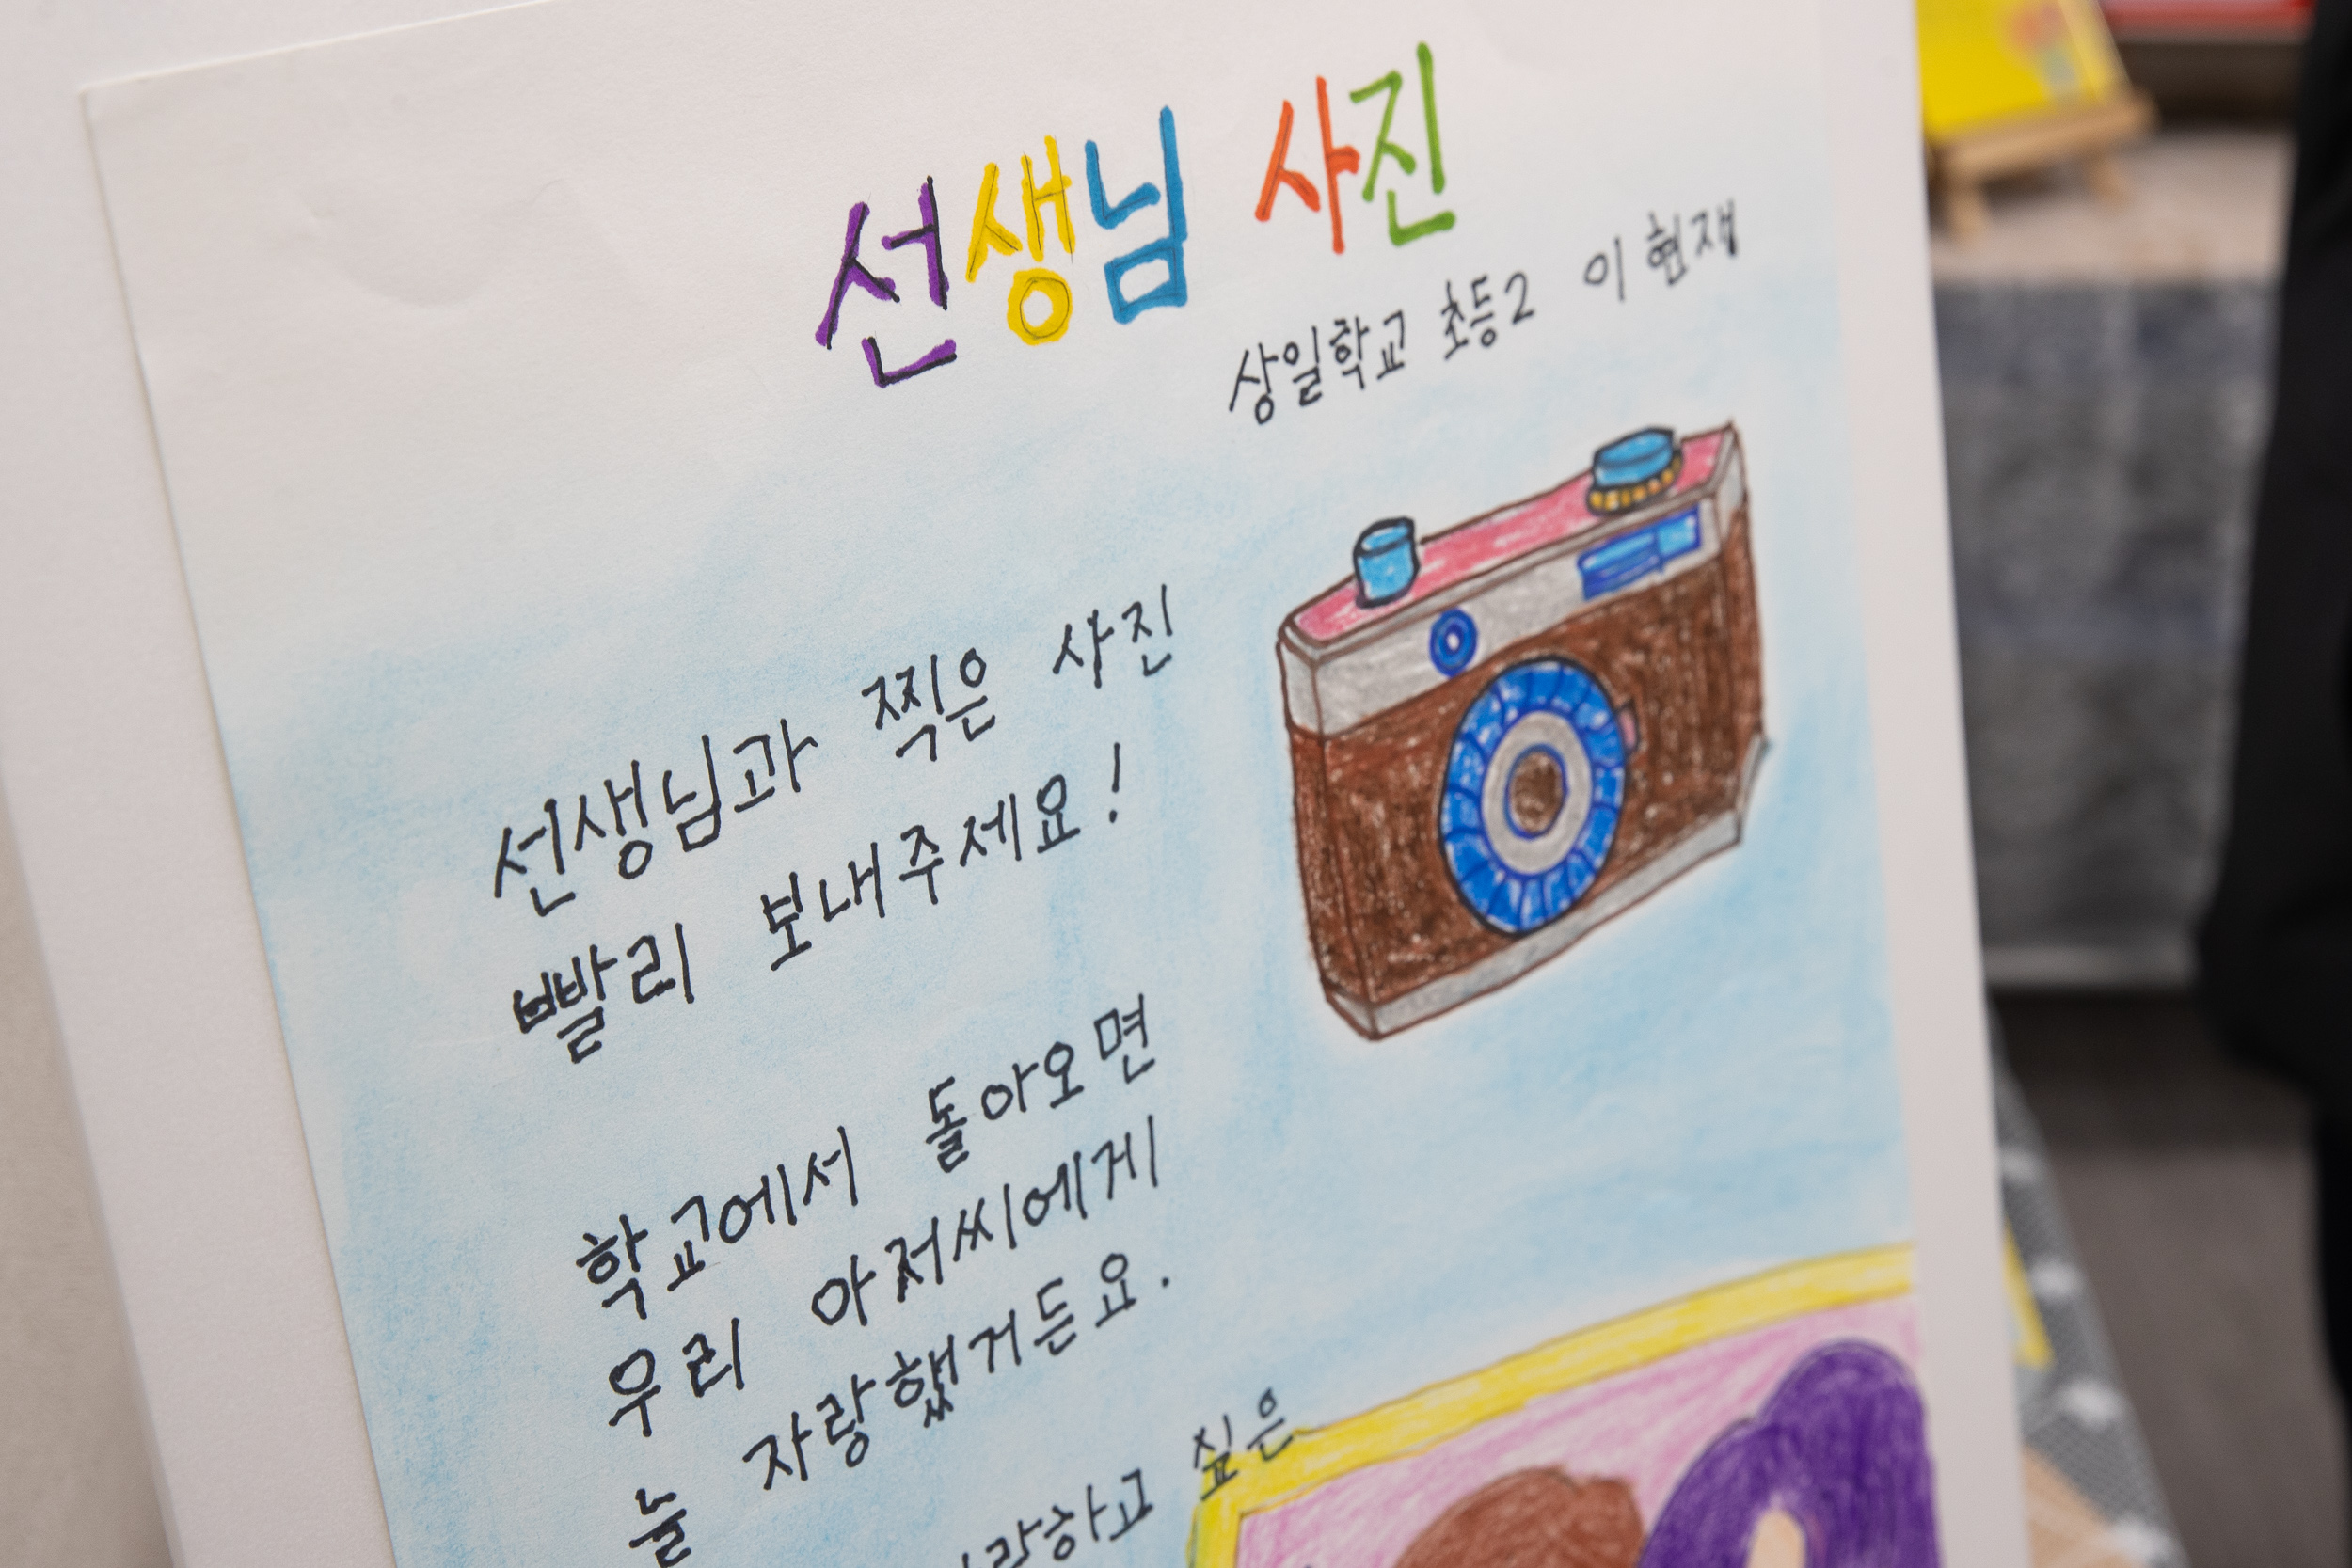 선생님 사진
상일학교 초등2 이현재
선생님과 찍은 사진
빨리 보내주세요!
학교에서 돌아오면
우리 아저씨에게
늘 자랑했거든요.
싶은